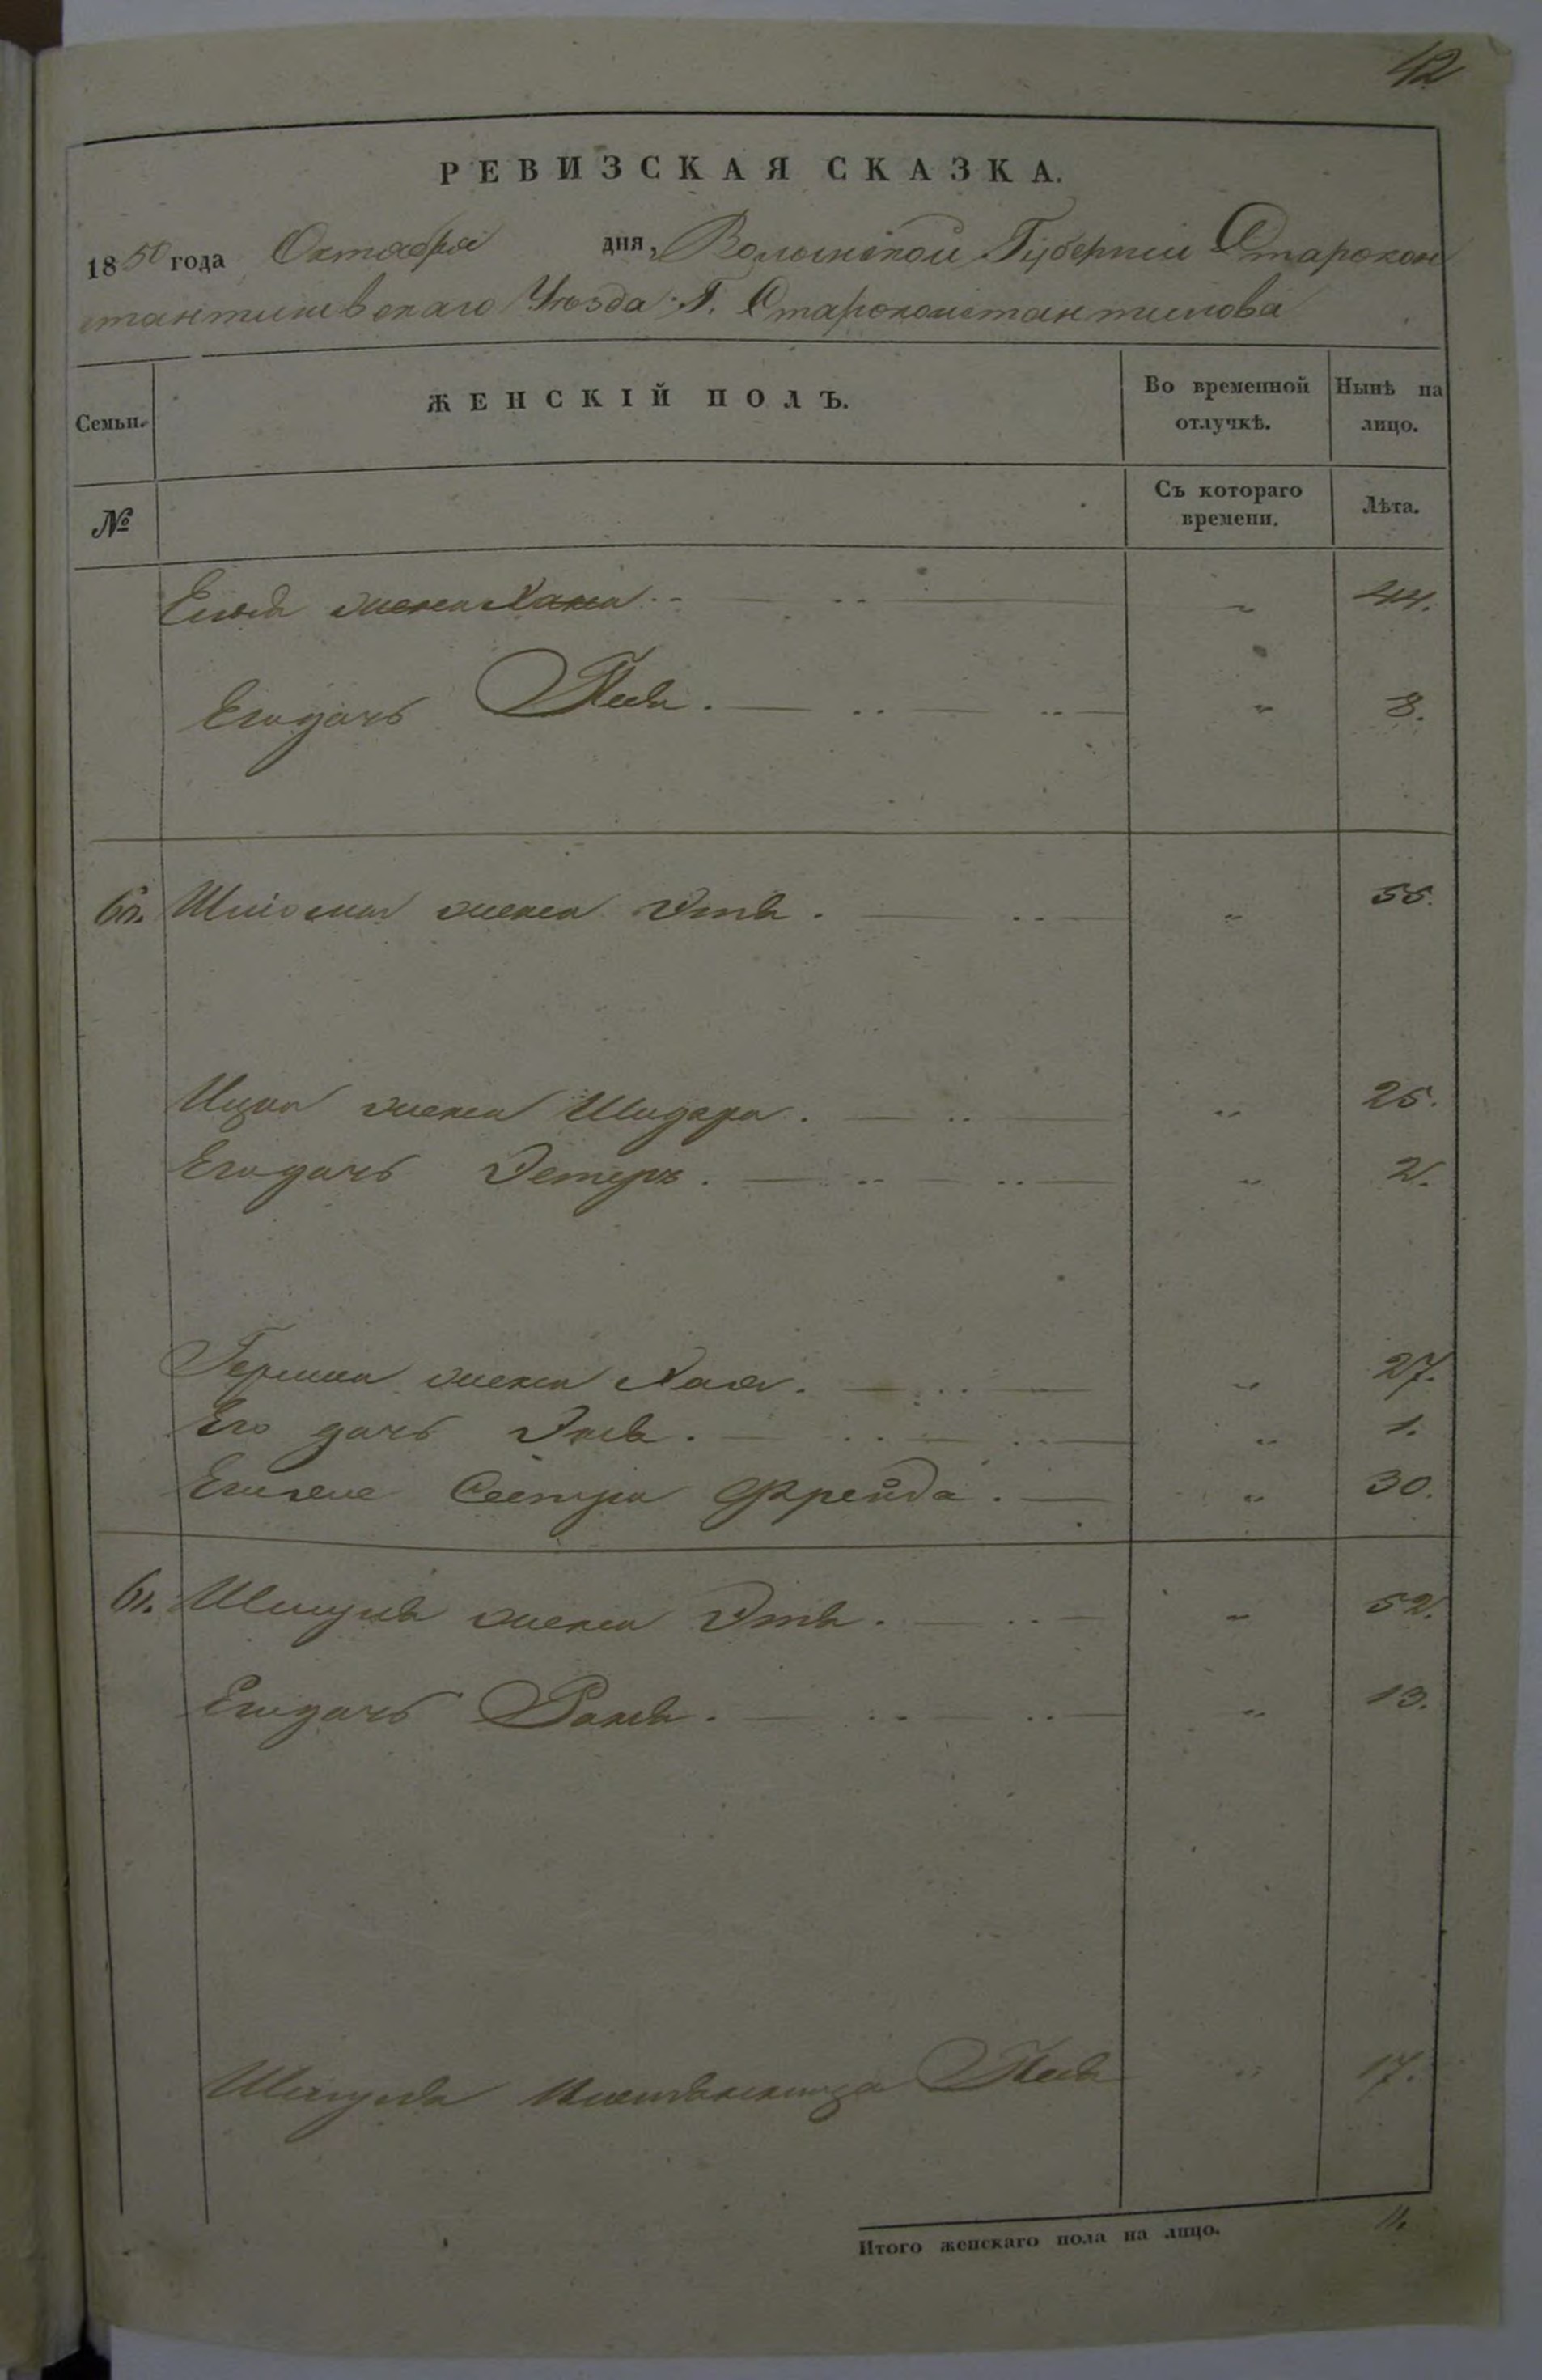 42
РЕВИЗСКАЯ СКАЗКА.
1850 года Октября дня, Волынской Губерніи Старокон
стантиновскаго Уѣзда Г. Староконстантинова
Семьи. ЖЕНСКІЙ ПОЛЪ. Во временной отлучкѣ. Нынѣ на лицо.
№ Съ котораго времени. Лѣта.
жена Хана 44.
Его дочь 8.
60. жена Этя. 55.
Ицка жена 25.
Его дочь Эстеръ. 2.
Гершка жена Хая. 27.
Его дочь 1.
Его же Сестра Фрейда. 30.
61. Шмуля жена Этя. 52.
Его дочь 13.
Шмуля 17.
Итого женскаго пола на лицо. 11.